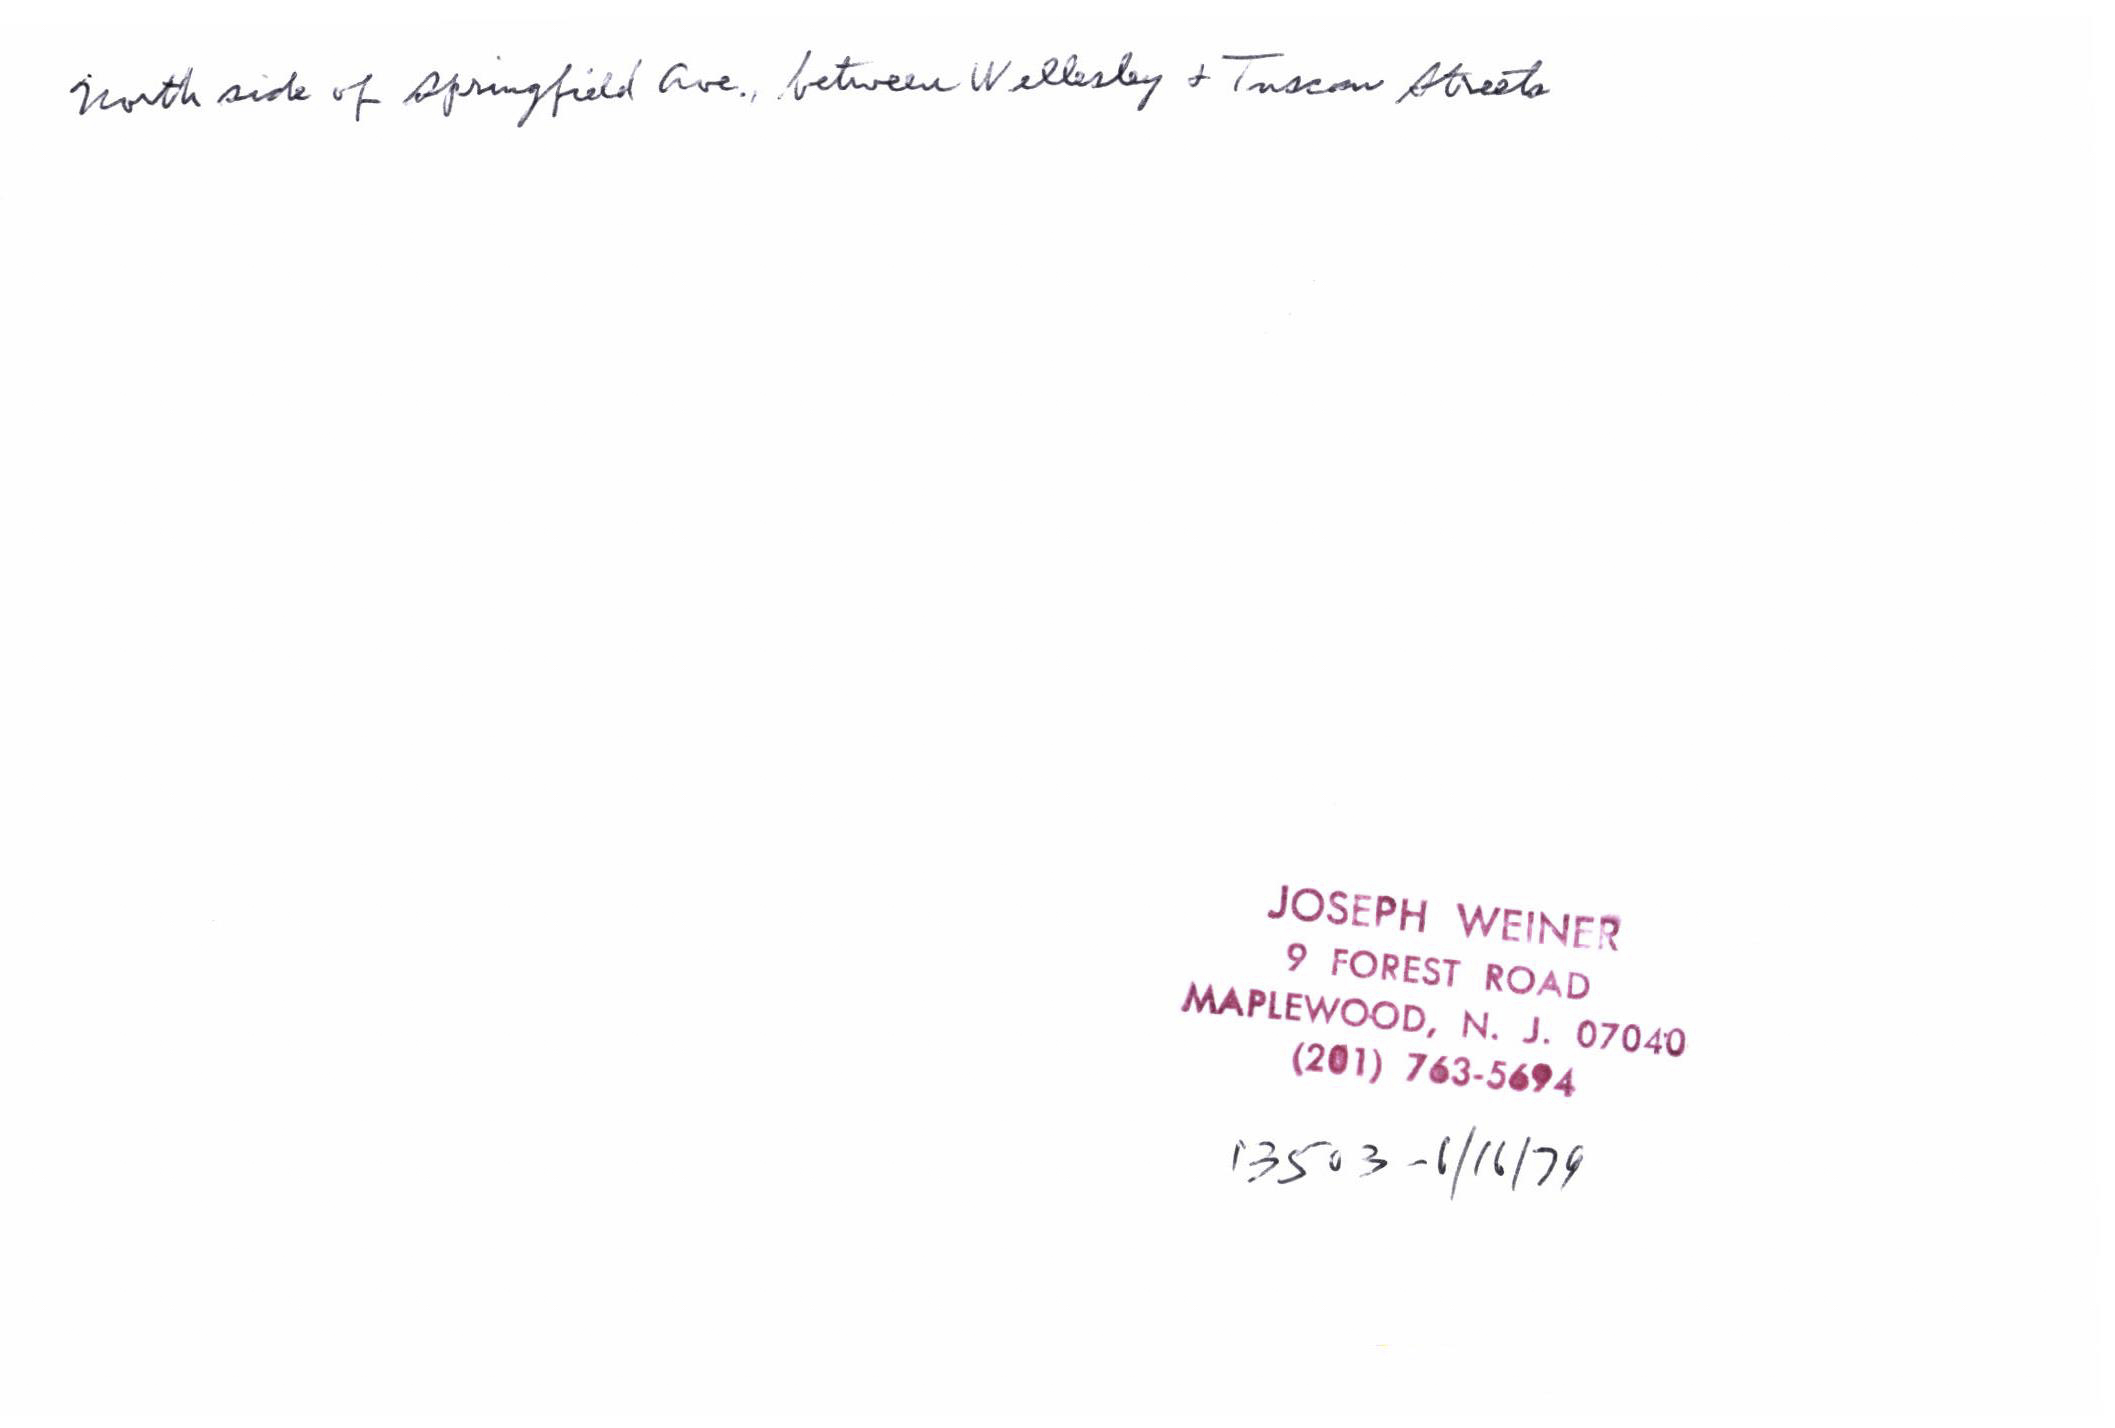 North side of Springfield Ave., between Wellesley + Tuscan Streets
JOSEPH WEINER
9 FOREST ROAD
MAPLEWOOD, N. J. 07040
(201) 763-5694
13503 - 6/16/79